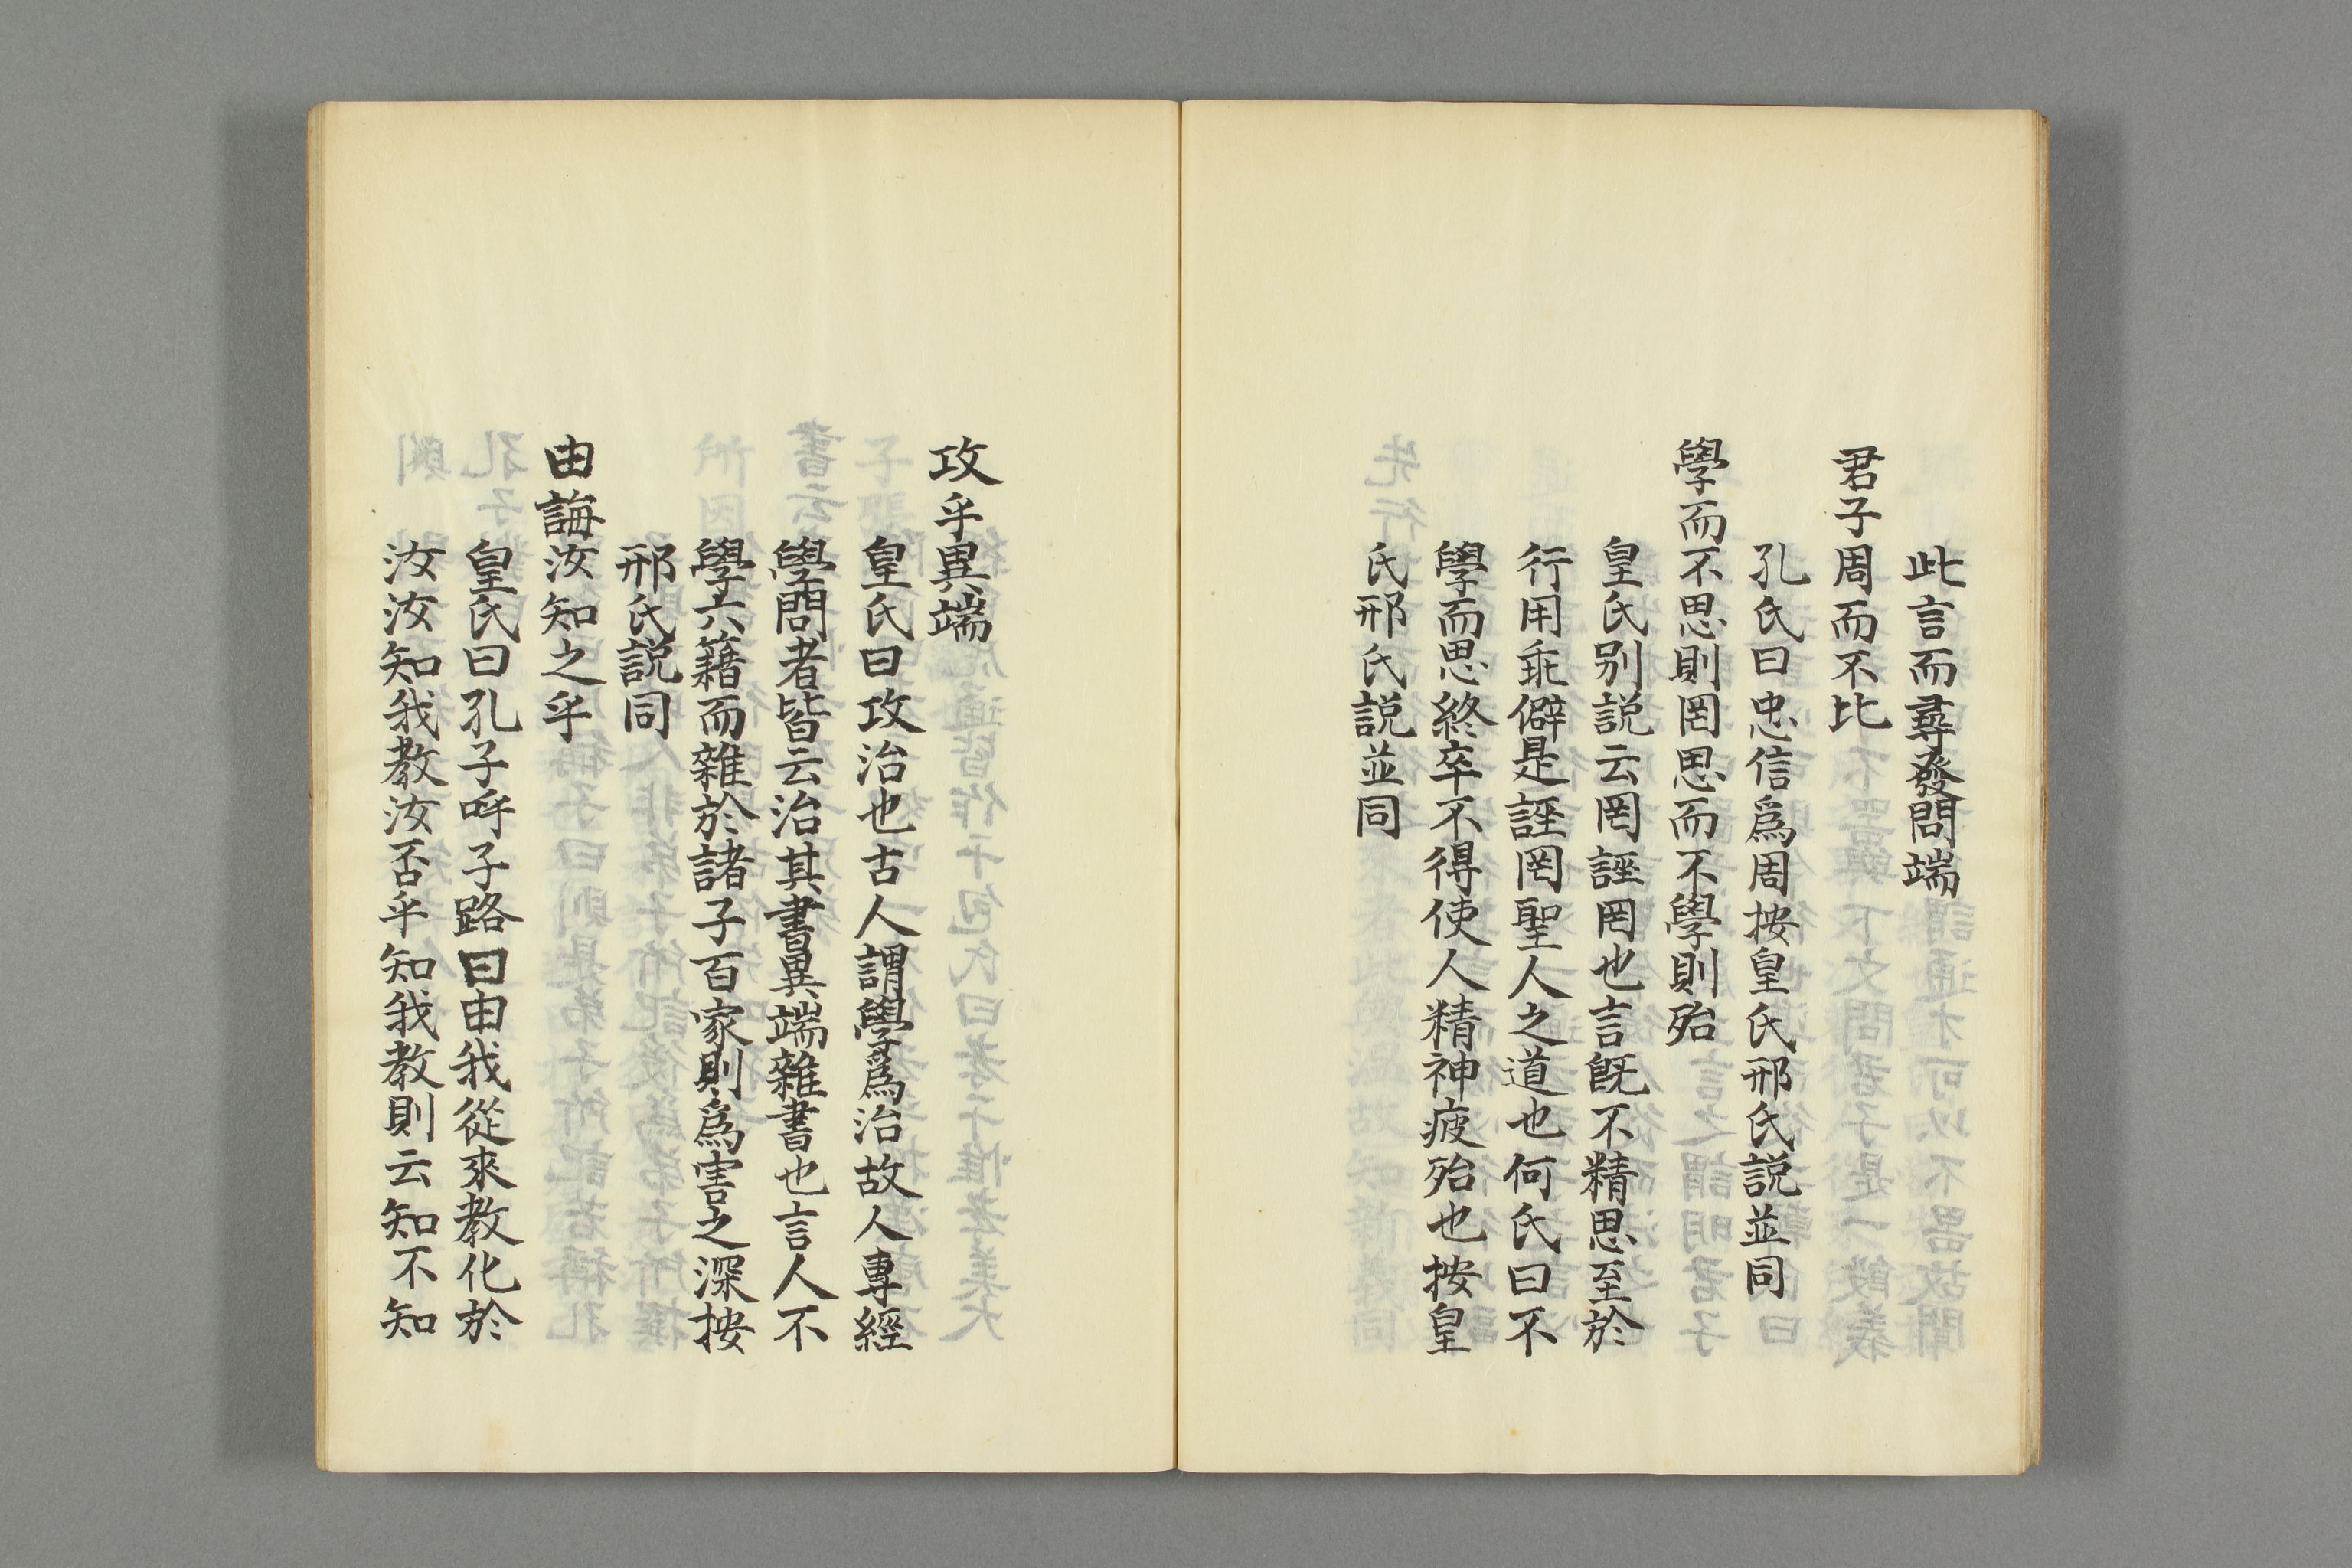 此言而尋發問端
君子周而不比
孔氏曰忠信爲周按皇氏邢氏説並同
學而不思則罔思而不學則殆
皇氏别説云罔誣罔也言旣不精思至於
行用乖僻是誣罔聖人之道也何氏曰不
學而思終卒不得使人精神疲殆也按皇
氏邢氏説並同
攻乎異端
皇氏曰攻治也古人謂學爲治故人專經
學問者皆云治其書異端雜書也言人不
學六籍而雜於諸子百家則爲害之深按
邢氏説同
由誨汝知之乎
皇氏曰孔子呼子路曰由我從來教化於
汝汝知我教汝否乎知我教則云知不知